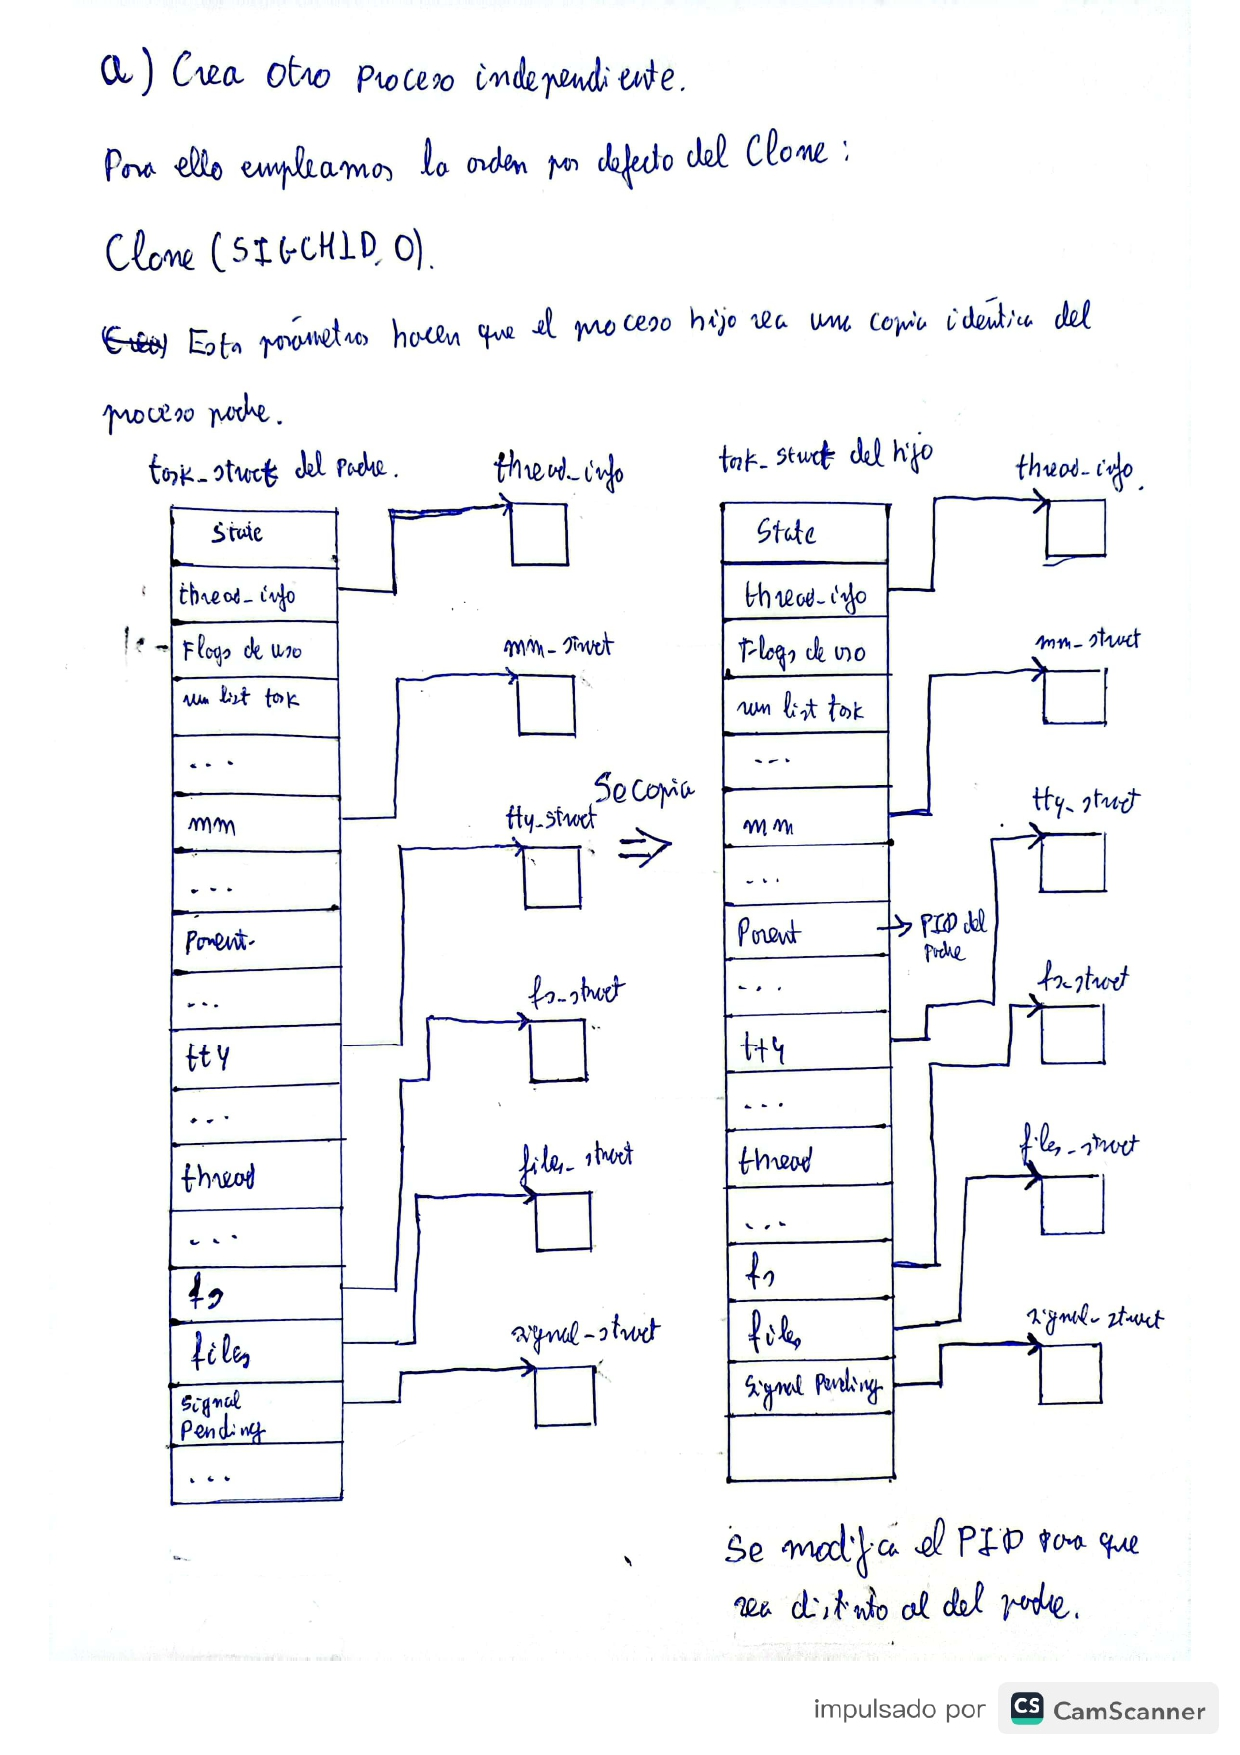 a) Crea otro proceso independiente.
Para ello empleamos la orden por defecto del Clone:
Clone (SIGCHLD, 0).
Estos parámetros hacen que el proceso hijo sea una copia idéntica del
proceso padre.
task_struct del padre.
thread_info
State
thread_info
Flags de uso
run list task
...
mm
...
Parent
...
tty
...
thread
...
fs
files
Signal
Pending
...
mm_struct
tty_struct
fs_struct
files_struct
signal_struct
Se copia
⇒
task_struct del hijo
thread_info.
State
thread_info
Flags de uso
run list task
...
mm
...
Parent → PID del
padre
...
tty
...
thread
...
fs
files
Signal Pending
mm_struct
tty_struct
fs_struct
files_struct
signal_struct
Se modifica el PID para que
sea distinto al del padre.
impulsado por CS CamScanner